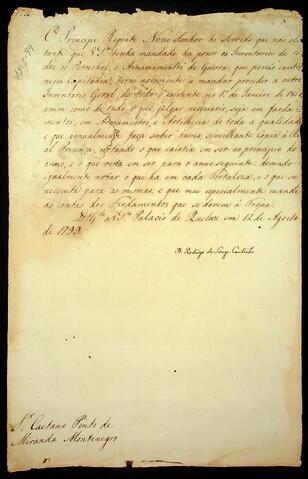 O Principe Regente Nosso Senhor he Servido que não obs
tante que V.S.ª tenha mandado, ha pouco os Inventarios de to
dos os Petrechos, e Armamentos de Guerra, que havião existir
nessa Capitania, torne novamente a mandar proceder a outro
Inventario Geral de todo o existente no 1.º de Janeiro de 1800
assim como de tudo o que julgar necessario, seja em farda
mentos, em Armamentos, e Artilheria de toda a qualidade
e que annualmente faça subir huma semelhante Copia á Re
al Presença, notando o que existia em ser no principio do
anno, e o que resta em ser para o anno seguinte, devendo
igualmente notar o que ha em cada Fortaleza, e o que se
necessita para as mesmas, e que mui especialmente mande
as contas dos Fardamentos que se devem á Tropa.
D.s G.e a V.S.ª Palacio de Queluz em 12 de Agosto
de 1799
D. Rodrigo de Souza Coutinho
S.r Caetano Pinto de
Miranda Montenegro